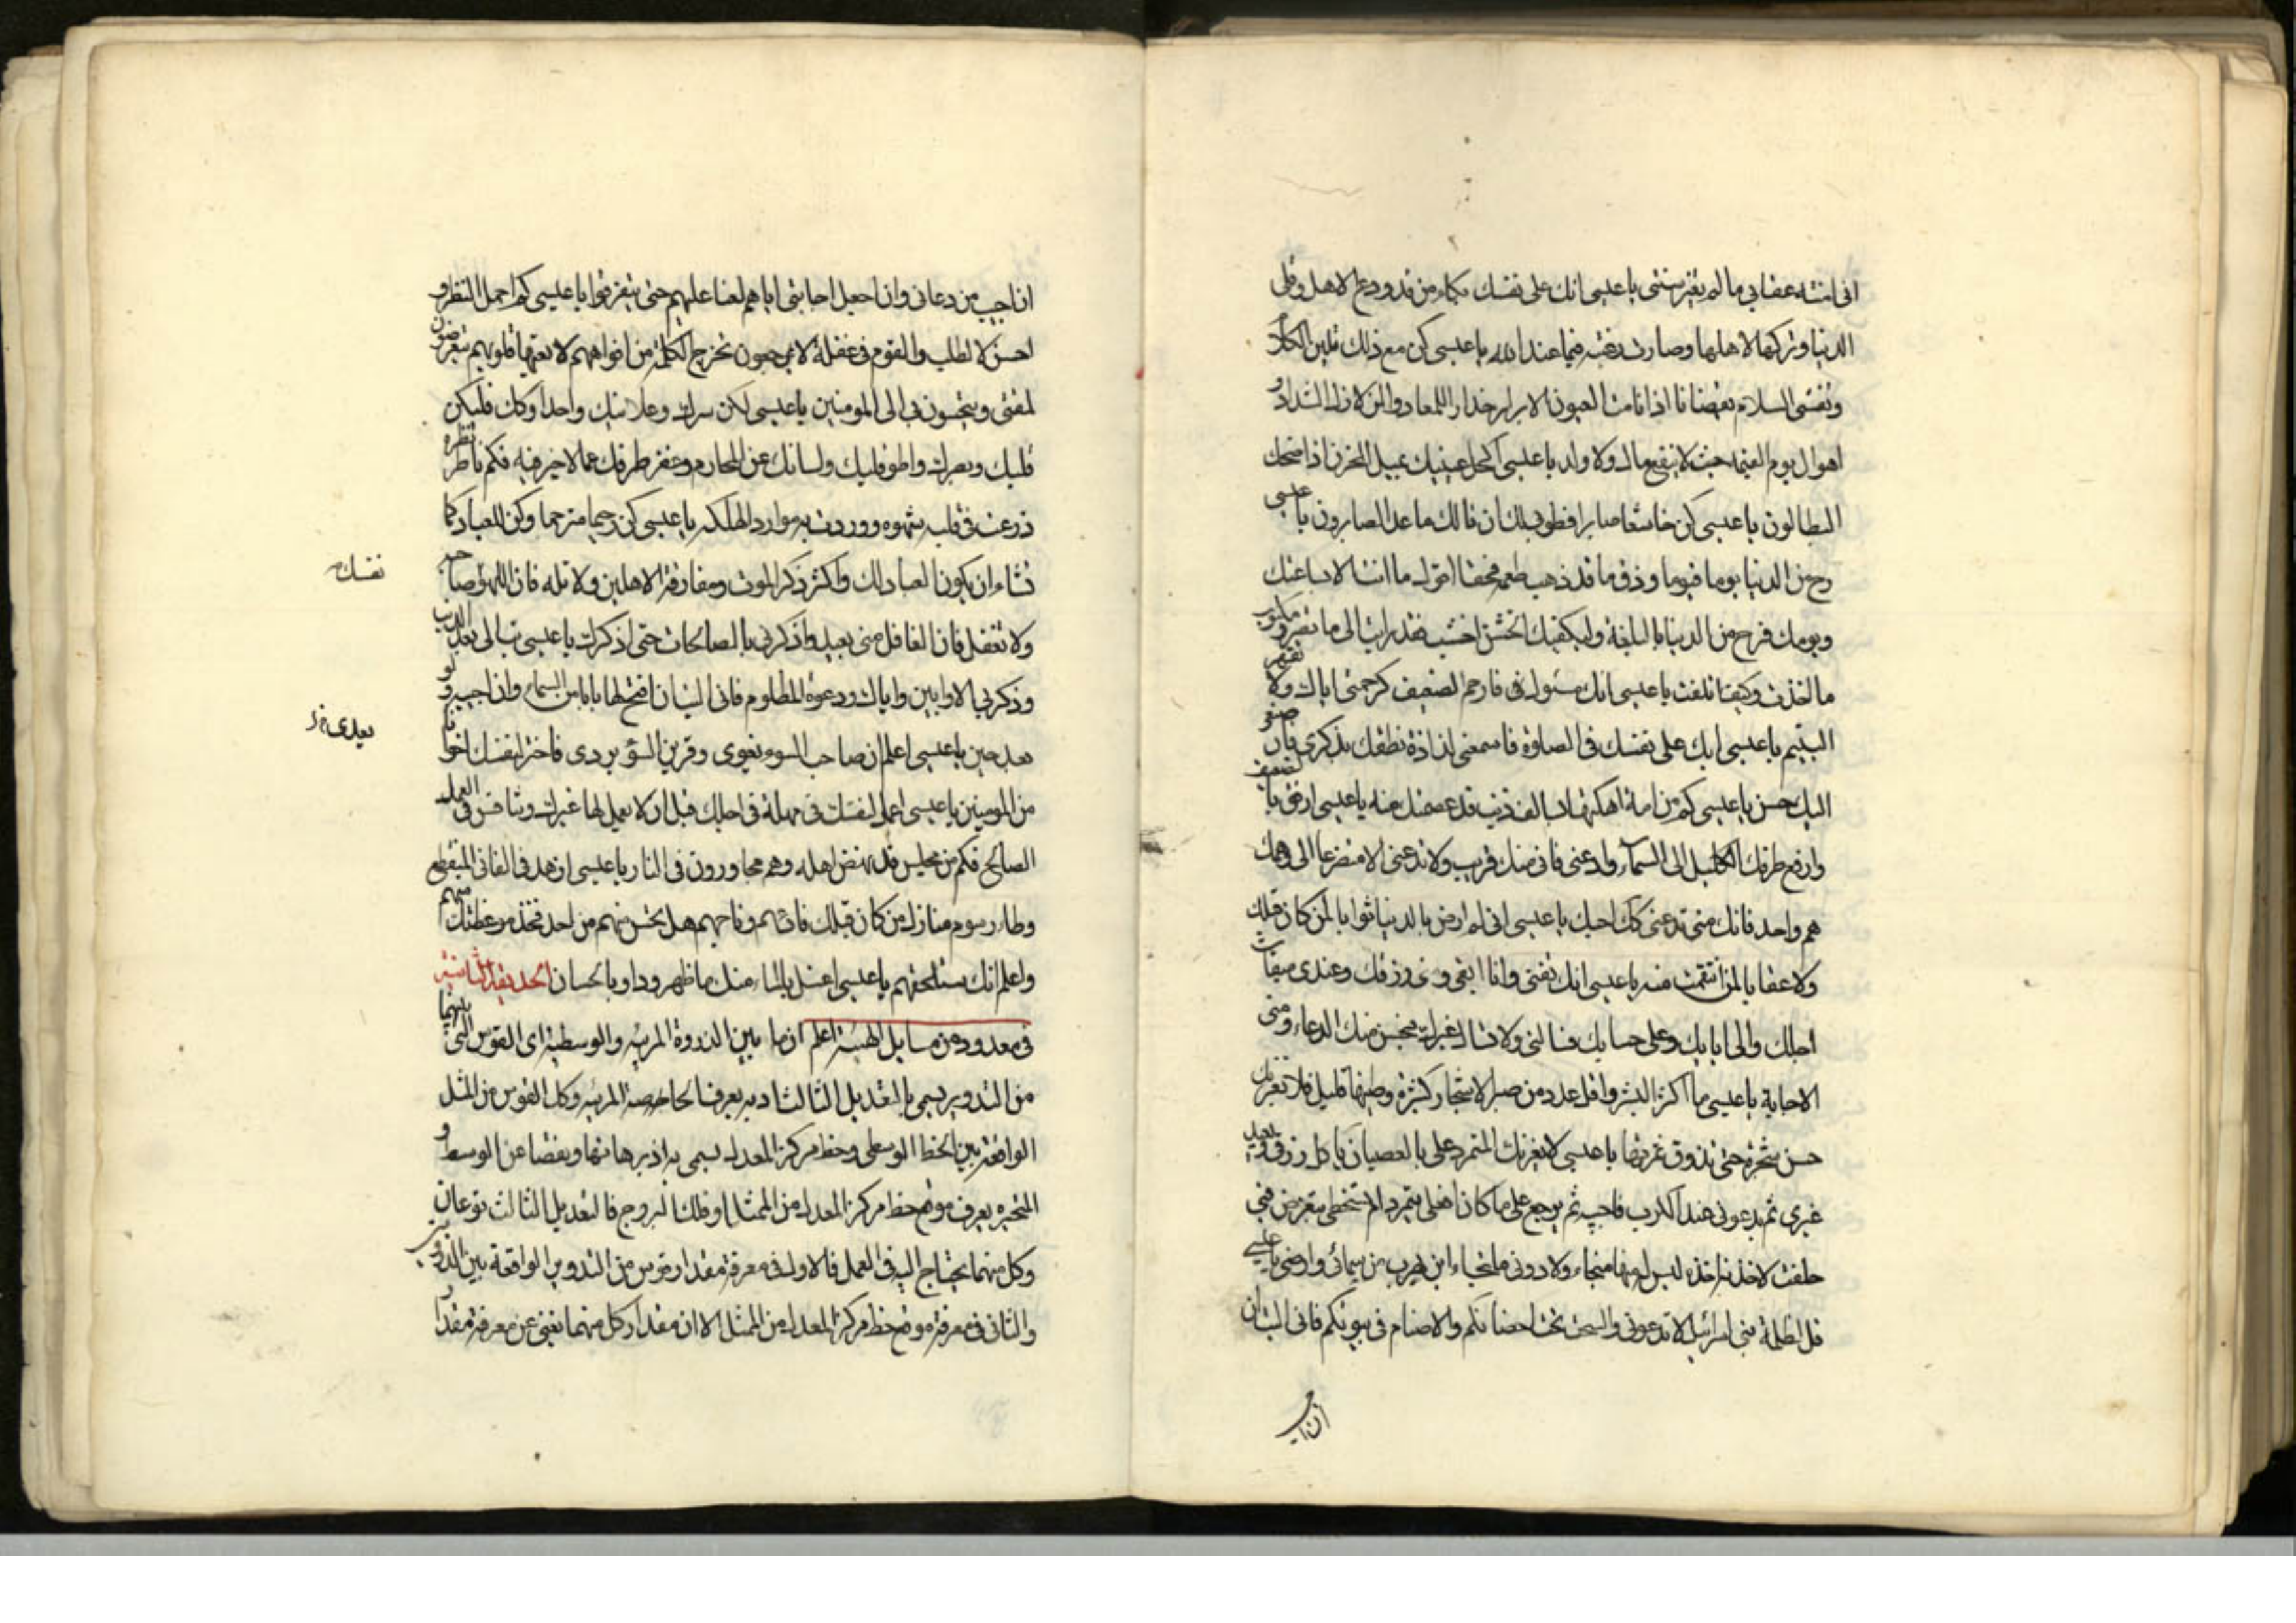 الدنيا وتركها لاهلها وصارت رغبته فيما عند الله يا عيسى كن مع ذلك تلين الكلام
وتفشى السلام يقضانا اذا نامت العيون الابرار حذار اللمعاد والزلازل الشداد و
اهوال يوم القيمة حيث لا ينفع مال ولا ولد يا عيسى اكحل عينيك بميل الحزن اذا ضحك
البطالون يا عيسى كن خاشعا صابرا فطوبى لك ان نالك ما عد الصابرون يا عيسى
رح من الدنيا يوما فيوما وذق ما قد ذهب طعمه فحقا اقول ما انت الا بساعتك
ويومك فرح من الدنيا بالبلغة وليكفيك الخشن الخشب فقد رايت الى ما تصير ومكتوب
ما اخذت وكيف اتلفت يا عيسى انك مسئول فارحم الضعيف كرحمتى اياك ولا تقهر
اليتيم يا عيسى ابك على نفسك فى الصلوة فاسمعنى لذاذة نطقك بذكرى فان صنعى
اليك حسن يا عيسى كم من امة اهلكتها بسالف ذنب قد عصمتك منه يا عيسى ارفق بالضعيف
وارفع طرفك الكليل الى السماء وادعنى فانى منك قريب ولا تدعنى الا متضرعا الى وهمك
هم واحد فانك متى تدعنى كذلك اجبك يا عيسى انى لم ارض بالدنيا ثوابا لمن كان قبلك
ولا عقابا لمن انتقمت منه يا عيسى انك تفنى وانا ابقى ومنى رزقك وعندى ميقات
اجلك والى ايابك وعلى حسابك فسالنى ولا تسال غيرك فيحسن منك الدعاء ومنى
الاجابة يا عيسى ما اكثر البشر واقل عدد من صبر الاشجار كثيرة وطيبها قليل فلا يغرنك
حسن شجرة حتى تذوق ثمرتها يا عيسى لا يغرنك المتمرد على بالعصيان ياكل رزقى ويعبد
غيرى ثم يدعونى عند الكرب فاجيبه ثم يرجع على ما كان افعلى يتمرد ام لسخطى يتعرض فبى
حلفت لاخذنه اخذة ليس له منها منجاء ولا دونى ملتجاء اين يهرب من سمائى وارضى يا عيسى
قل لظلمة بنى اسرائيل لا تدعونى والسحت تحت احضانكم والاصنام فى بيوتكم فانى اليت ان
ان اجيب
ان اجيب من دعانى وان اجعل اجابتى اياهم لعنا عليهم حتى يتفرقوا يا عيسى كم اجمل النظر و
احسن الطلب والقوم فى غفلة لا يرجعون تخرج الكلمة من افواههم لا تعيها قلوبهم يتعرضون
لمقتى ويتحببون بى الى المومنين يا عيسى لكن سرك وعلانيتك واحدا وكذلك فليكن
قلبك وبصرك واطو قلبك ولسانك عن المحارم وغض طرفك عما لا خير فيه فكم ناظر نظرة
زرعت فى قلبه شهوة ووردت به موارد الهلكة يا عيسى كن رحيما مترحما وكن للعباد كما
تشاء ان يكون العباد لك واكثر ذكر الموت ومفارقة الاهلين ولا تله فان اللهو يفسد صاحبه
ولا تغفل فان الغافل منى بعيد واذكرنى بالصالحات حتى اذكرك يا عيسى تب الى بعد الذنب
وذكر بى الاوابين واياك ودعوة المظلوم فانى اليت ان افتح لها بابا من السماء وان اجيبه ولو
بعد حين يا عيسى اعلم ان صاحب السوء يغوى وقرين السوء يردى فاختر لنفسك اخوانا
من المومنين يا عيسى اعمل لنفسك فى مهلة فى اجلك قبل ان لا يعمل لها غيرك وتنافس فى العمل
الصالح فكم من مجلس قد نهض اهله وهم مجاورون فى النار يا عيسى ازهد فى الفانى المنقطع
وطاء رسوم منازل من كان قبلك فادعهم وناجهم هل تحس منهم من احد فخذ موعظتك منهم
واعلم انك ستلحقهم يا عيسى اغسل بالماء منك ما ظهر وداو بالحسان الحديقة الثامنة
فى معدودة من مسايل الهيئة اعلم ان ما بين الذروة المرئية والوسطية اى القوس التى بينهما
من التدوير يسمى بالتعديل الثالث اذ به يعرف الخاصة المرئية وكل القوس من المثل
الواقعة بين الخط الوسطى وخط مركز المعدل يسمى به اذ بزيادتها ونقصها عن الوسط و
المتحيرة يعرف موضع خط مركز المعدل من الممثل او فلك البروج فالتعديل الثالث نوعان
وكل منهما يحتاج اليه فى العمل فالاول فى معرفة مقدار قوس من التدوير الواقعة بين الذروتين
والثانى فى معرفة موضع خط مركز المعدل من الممثل الا ان مقدار كل منهما يغنى عن معرفة مقدار
نفسك